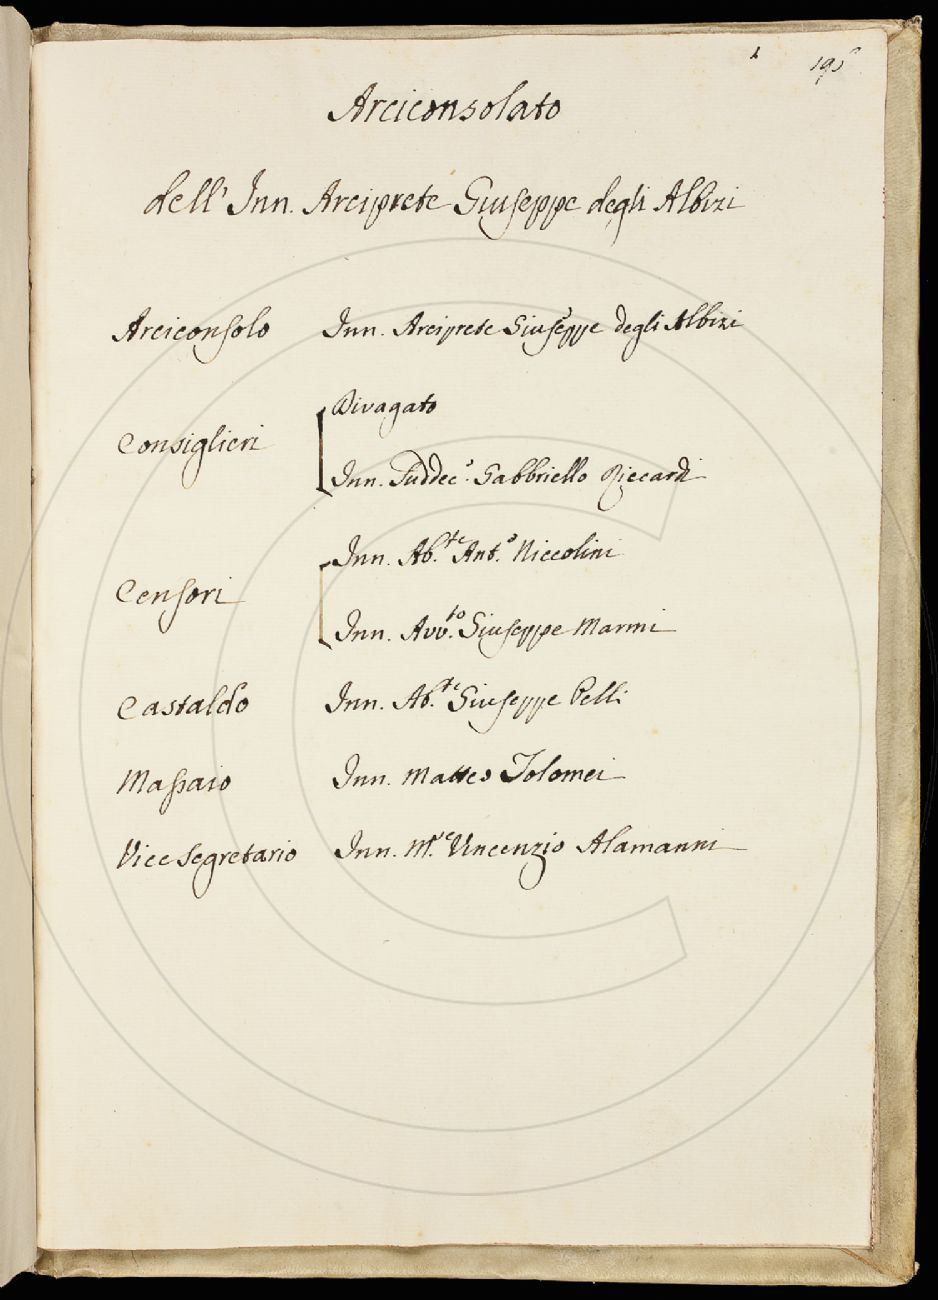 195
Arciconsolato
dell' Inn. Arciprete Giuseppe degli Albizi
Arciconsolo Inn. Arciprete Giuseppe degli Albizi
Divagato
Consiglieri
Inn. Suddec.º Gabbriello Riccardi
Inn. Ab.te Ant.º Niccolini
Censori
Inn. Avv.to Giuseppe Marmi
Castaldo Inn. Ab.te Giuseppe Pelli
Massaio Inn. Matteo Tolomei
Vice Segretario Inn. M.se Vincenzio Alamanni